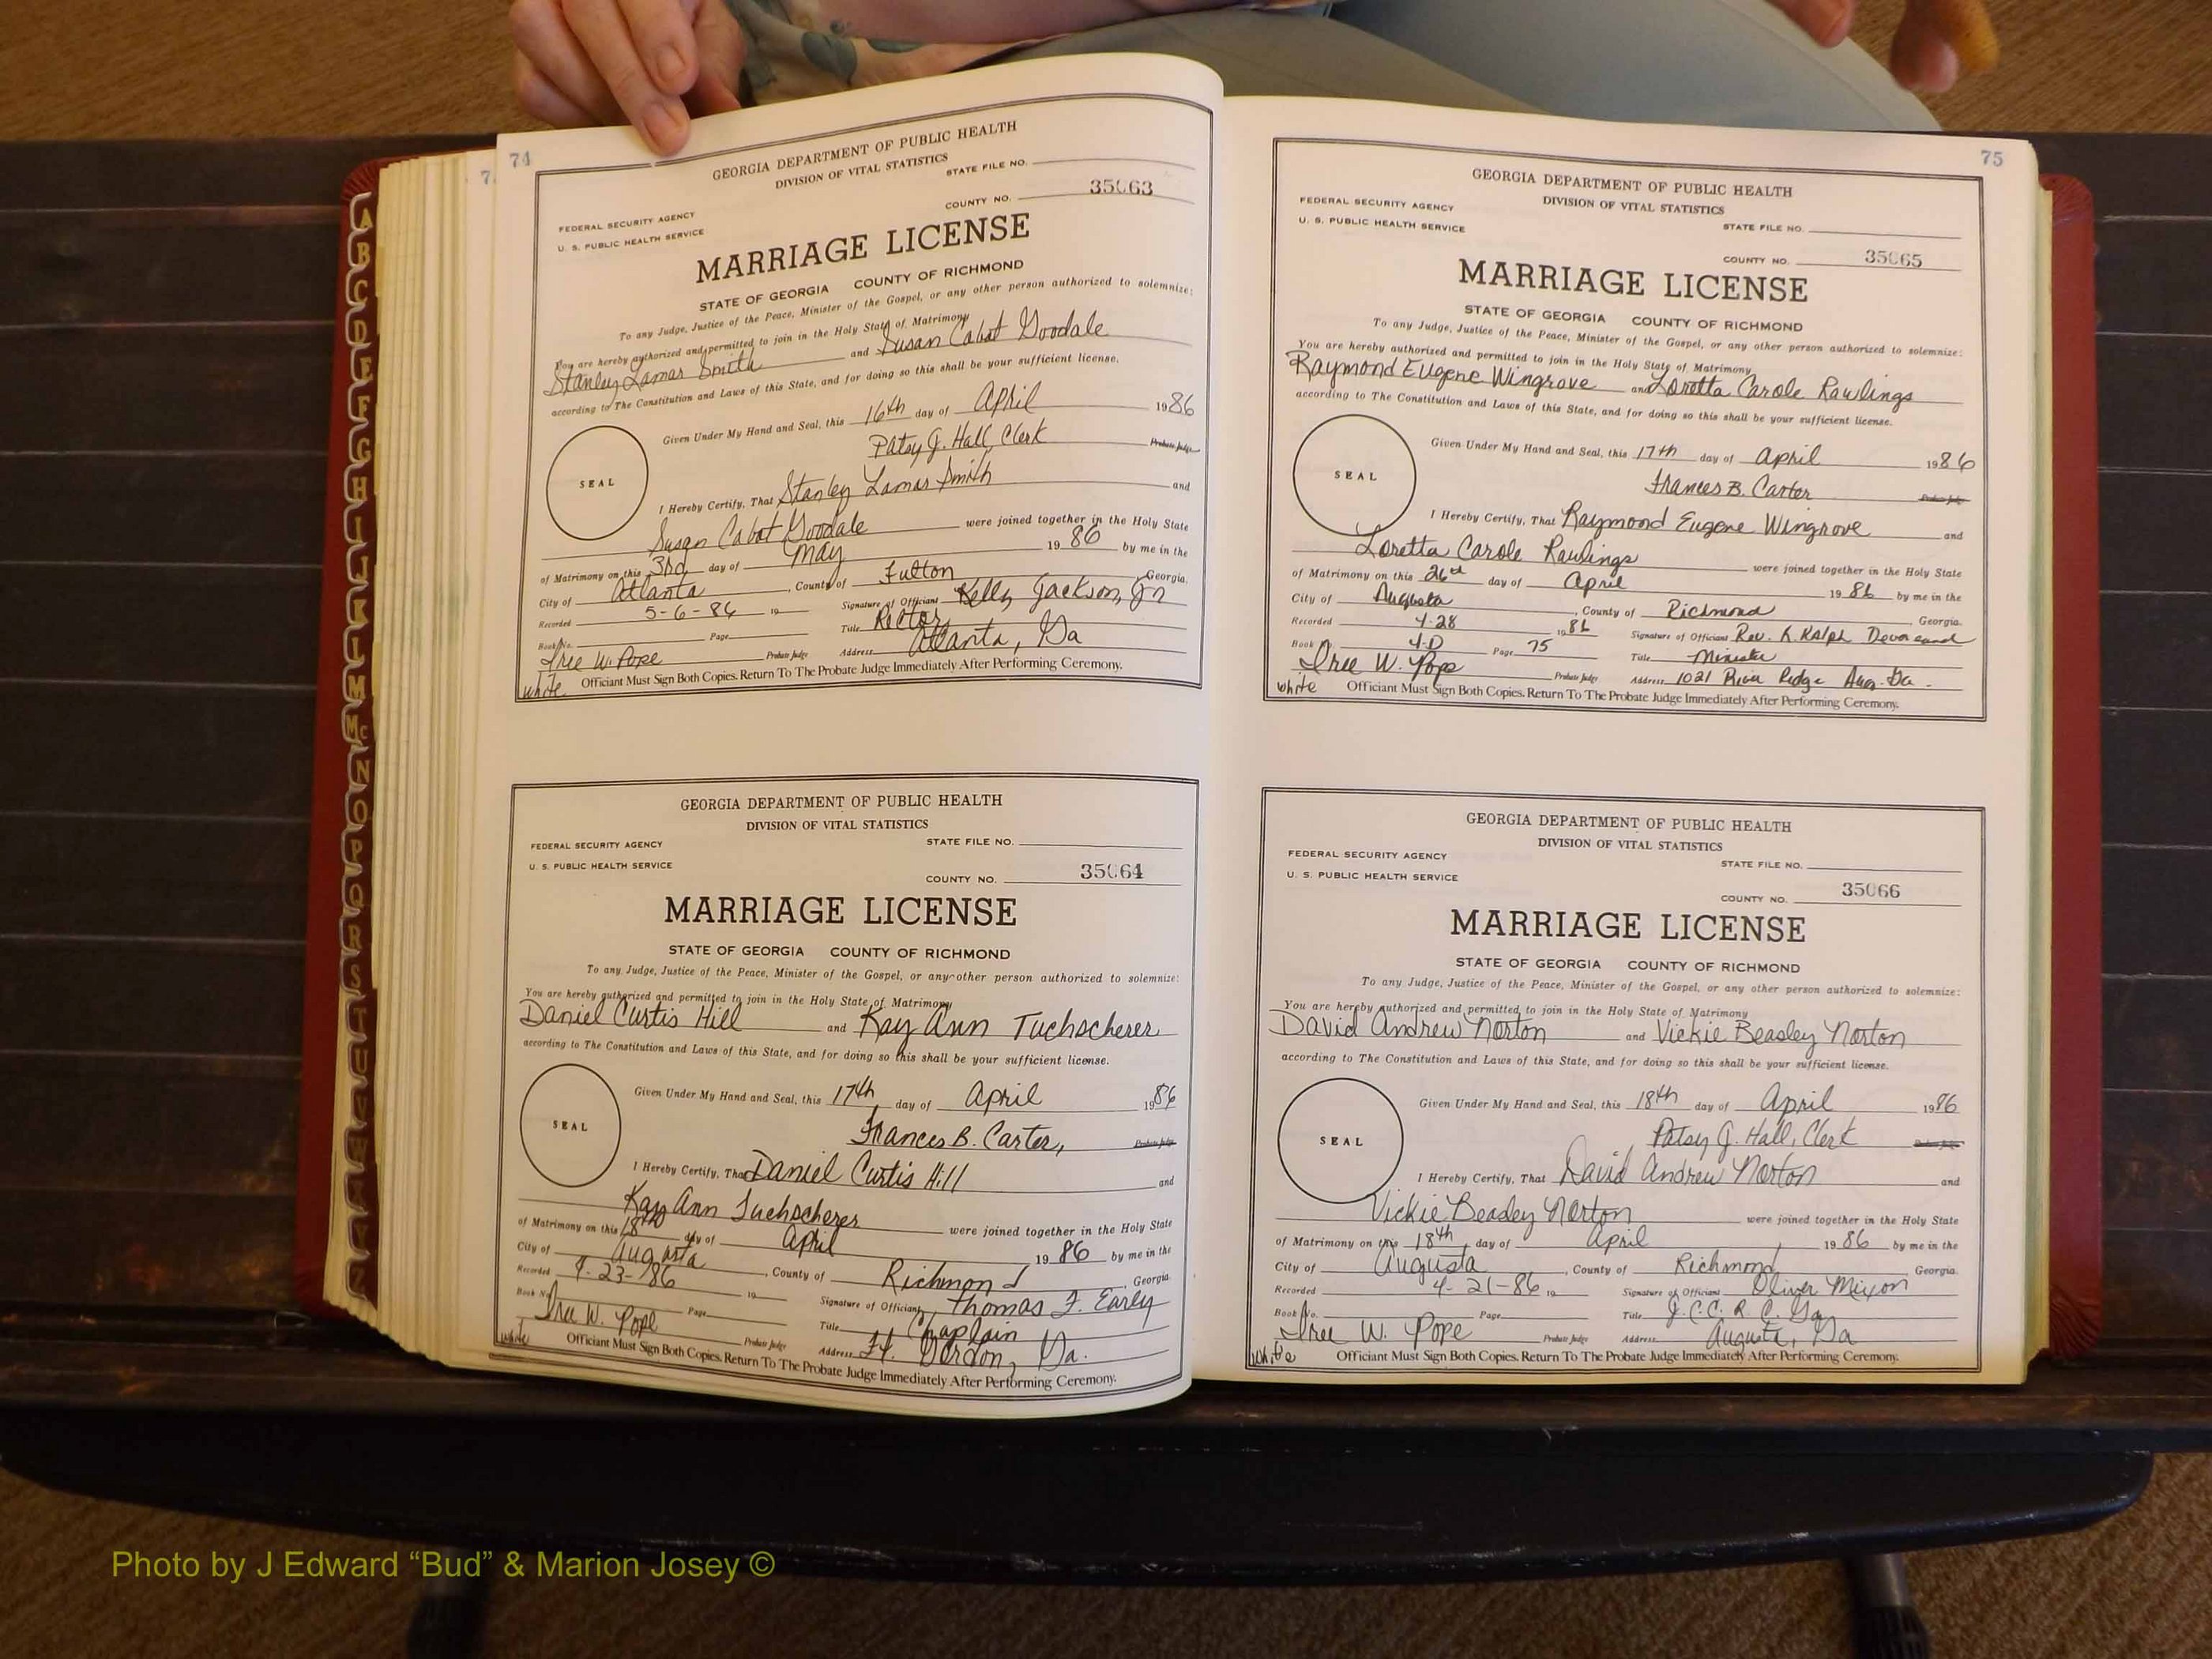 74
GEORGIA DEPARTMENT OF PUBLIC HEALTH
DIVISION OF VITAL STATISTICS
STATE FILE NO.
COUNTY NO. 35063
FEDERAL SECURITY AGENCY
U. S. PUBLIC HEALTH SERVICE
MARRIAGE LICENSE
STATE OF GEORGIA COUNTY OF RICHMOND
To any Judge, Justice of the Peace, Minister of the Gospel, or any other person authorized to solemnize:
You are hereby authorized and permitted to join in the Holy State of Matrimony
Stanley Lamar Smith and Susan Cabot Goodale
according to The Constitution and Laws of this State, and for doing so this shall be your sufficient license.
Given Under My Hand and Seal, this 16th day of April 1986
Patsy J. Hall, Clerk Probate Judge
SEAL
I Hereby Certify, That Stanley Lamar Smith and
Susan Cabot Goodale were joined together in the Holy State
of Matrimony on this 3rd day of May 1986 by me in the
City of Atlanta, County of Fulton Georgia.
Recorded 5-6-86 19 Signature of Officiant Kelly Jackson, Jr
Book No. Page Title Rector
Iree W. Pope Probate Judge Address Atlanta, Ga
white Officiant Must Sign Both Copies. Return To The Probate Judge Immediately After Performing Ceremony.
GEORGIA DEPARTMENT OF PUBLIC HEALTH
DIVISION OF VITAL STATISTICS
FEDERAL SECURITY AGENCY STATE FILE NO.
U. S. PUBLIC HEALTH SERVICE
COUNTY NO. 35064
MARRIAGE LICENSE
STATE OF GEORGIA COUNTY OF RICHMOND
To any Judge, Justice of the Peace, Minister of the Gospel, or any other person authorized to solemnize:
You are hereby authorized and permitted to join in the Holy State of Matrimony
Daniel Curtis Hill and Kay Ann Tuchscherer
according to The Constitution and Laws of this State, and for doing so this shall be your sufficient license.
Given Under My Hand and Seal, this 17th day of April 1986
Frances B. Carter, Probate Judge
SEAL
I Hereby Certify, That Daniel Curtis Hill and
Kay Ann Tuchscherer were joined together in the Holy State
of Matrimony on this 18th day of April 1986 by me in the
City of Augusta, County of Richmond, Georgia.
Recorded 4-23-86 19 Signature of Officiant Thomas F. Early
Book No. Page Title Chaplain
Iree W. Pope Probate Judge Address Ft. Gordon, Ga.
white Officiant Must Sign Both Copies. Return To The Probate Judge Immediately After Performing Ceremony.
75
GEORGIA DEPARTMENT OF PUBLIC HEALTH
DIVISION OF VITAL STATISTICS
FEDERAL SECURITY AGENCY
U. S. PUBLIC HEALTH SERVICE STATE FILE NO.
COUNTY NO. 35065
MARRIAGE LICENSE
STATE OF GEORGIA COUNTY OF RICHMOND
To any Judge, Justice of the Peace, Minister of the Gospel, or any other person authorized to solemnize:
You are hereby authorized and permitted to join in the Holy State of Matrimony
Raymond Eugene Wingrove and Loretta Carole Rawlings
according to The Constitution and Laws of this State, and for doing so this shall be your sufficient license.
Given Under My Hand and Seal, this 17th day of April 1986
Frances B. Carter Probate Judge
SEAL
I Hereby Certify, That Raymond Eugene Wingrove and
Loretta Carole Rawlings were joined together in the Holy State
of Matrimony on this 26 day of April 1986 by me in the
City of Augusta, County of Richmond Georgia.
Recorded 4-28 1986 Signature of Officiant Rev. Ralph
Book No. 4-D Page 75 Title Minister
Iree W. Pope Probate Judge Address 1021 River Ridge Aug. Ga.
white Officiant Must Sign Both Copies. Return To The Probate Judge Immediately After Performing Ceremony.
GEORGIA DEPARTMENT OF PUBLIC HEALTH
DIVISION OF VITAL STATISTICS
FEDERAL SECURITY AGENCY STATE FILE NO.
U. S. PUBLIC HEALTH SERVICE
COUNTY NO. 35066
MARRIAGE LICENSE
STATE OF GEORGIA COUNTY OF RICHMOND
To any Judge, Justice of the Peace, Minister of the Gospel, or any other person authorized to solemnize:
You are hereby authorized and permitted to join in the Holy State of Matrimony
David Andrew Norton and Vickie Beasley Norton
according to The Constitution and Laws of this State, and for doing so this shall be your sufficient license.
Given Under My Hand and Seal, this 18th day of April 1986
Patsy J. Hall, Clerk
SEAL
I Hereby Certify, That David Andrew Norton and
Vickie Beasley Norton were joined together in the Holy State
of Matrimony on this 18th day of April, 1986 by me in the
City of Augusta, County of Richmond, Georgia.
Recorded 4-21-86 19 Signature of Officiant Oliver Mixon
Book No. Page Title J.C.C. R.C. Ga
Iree W. Pope Probate Judge Address Augusta, Ga
white Officiant Must Sign Both Copies. Return To The Probate Judge Immediately After Performing Ceremony.
A
B
C
D
E
F
G
H
I
J
K
L
M
Mc
N
O
P
Q
R
S
T
U
V
W
Photo by J Edward “Bud” & Marion Josey ©